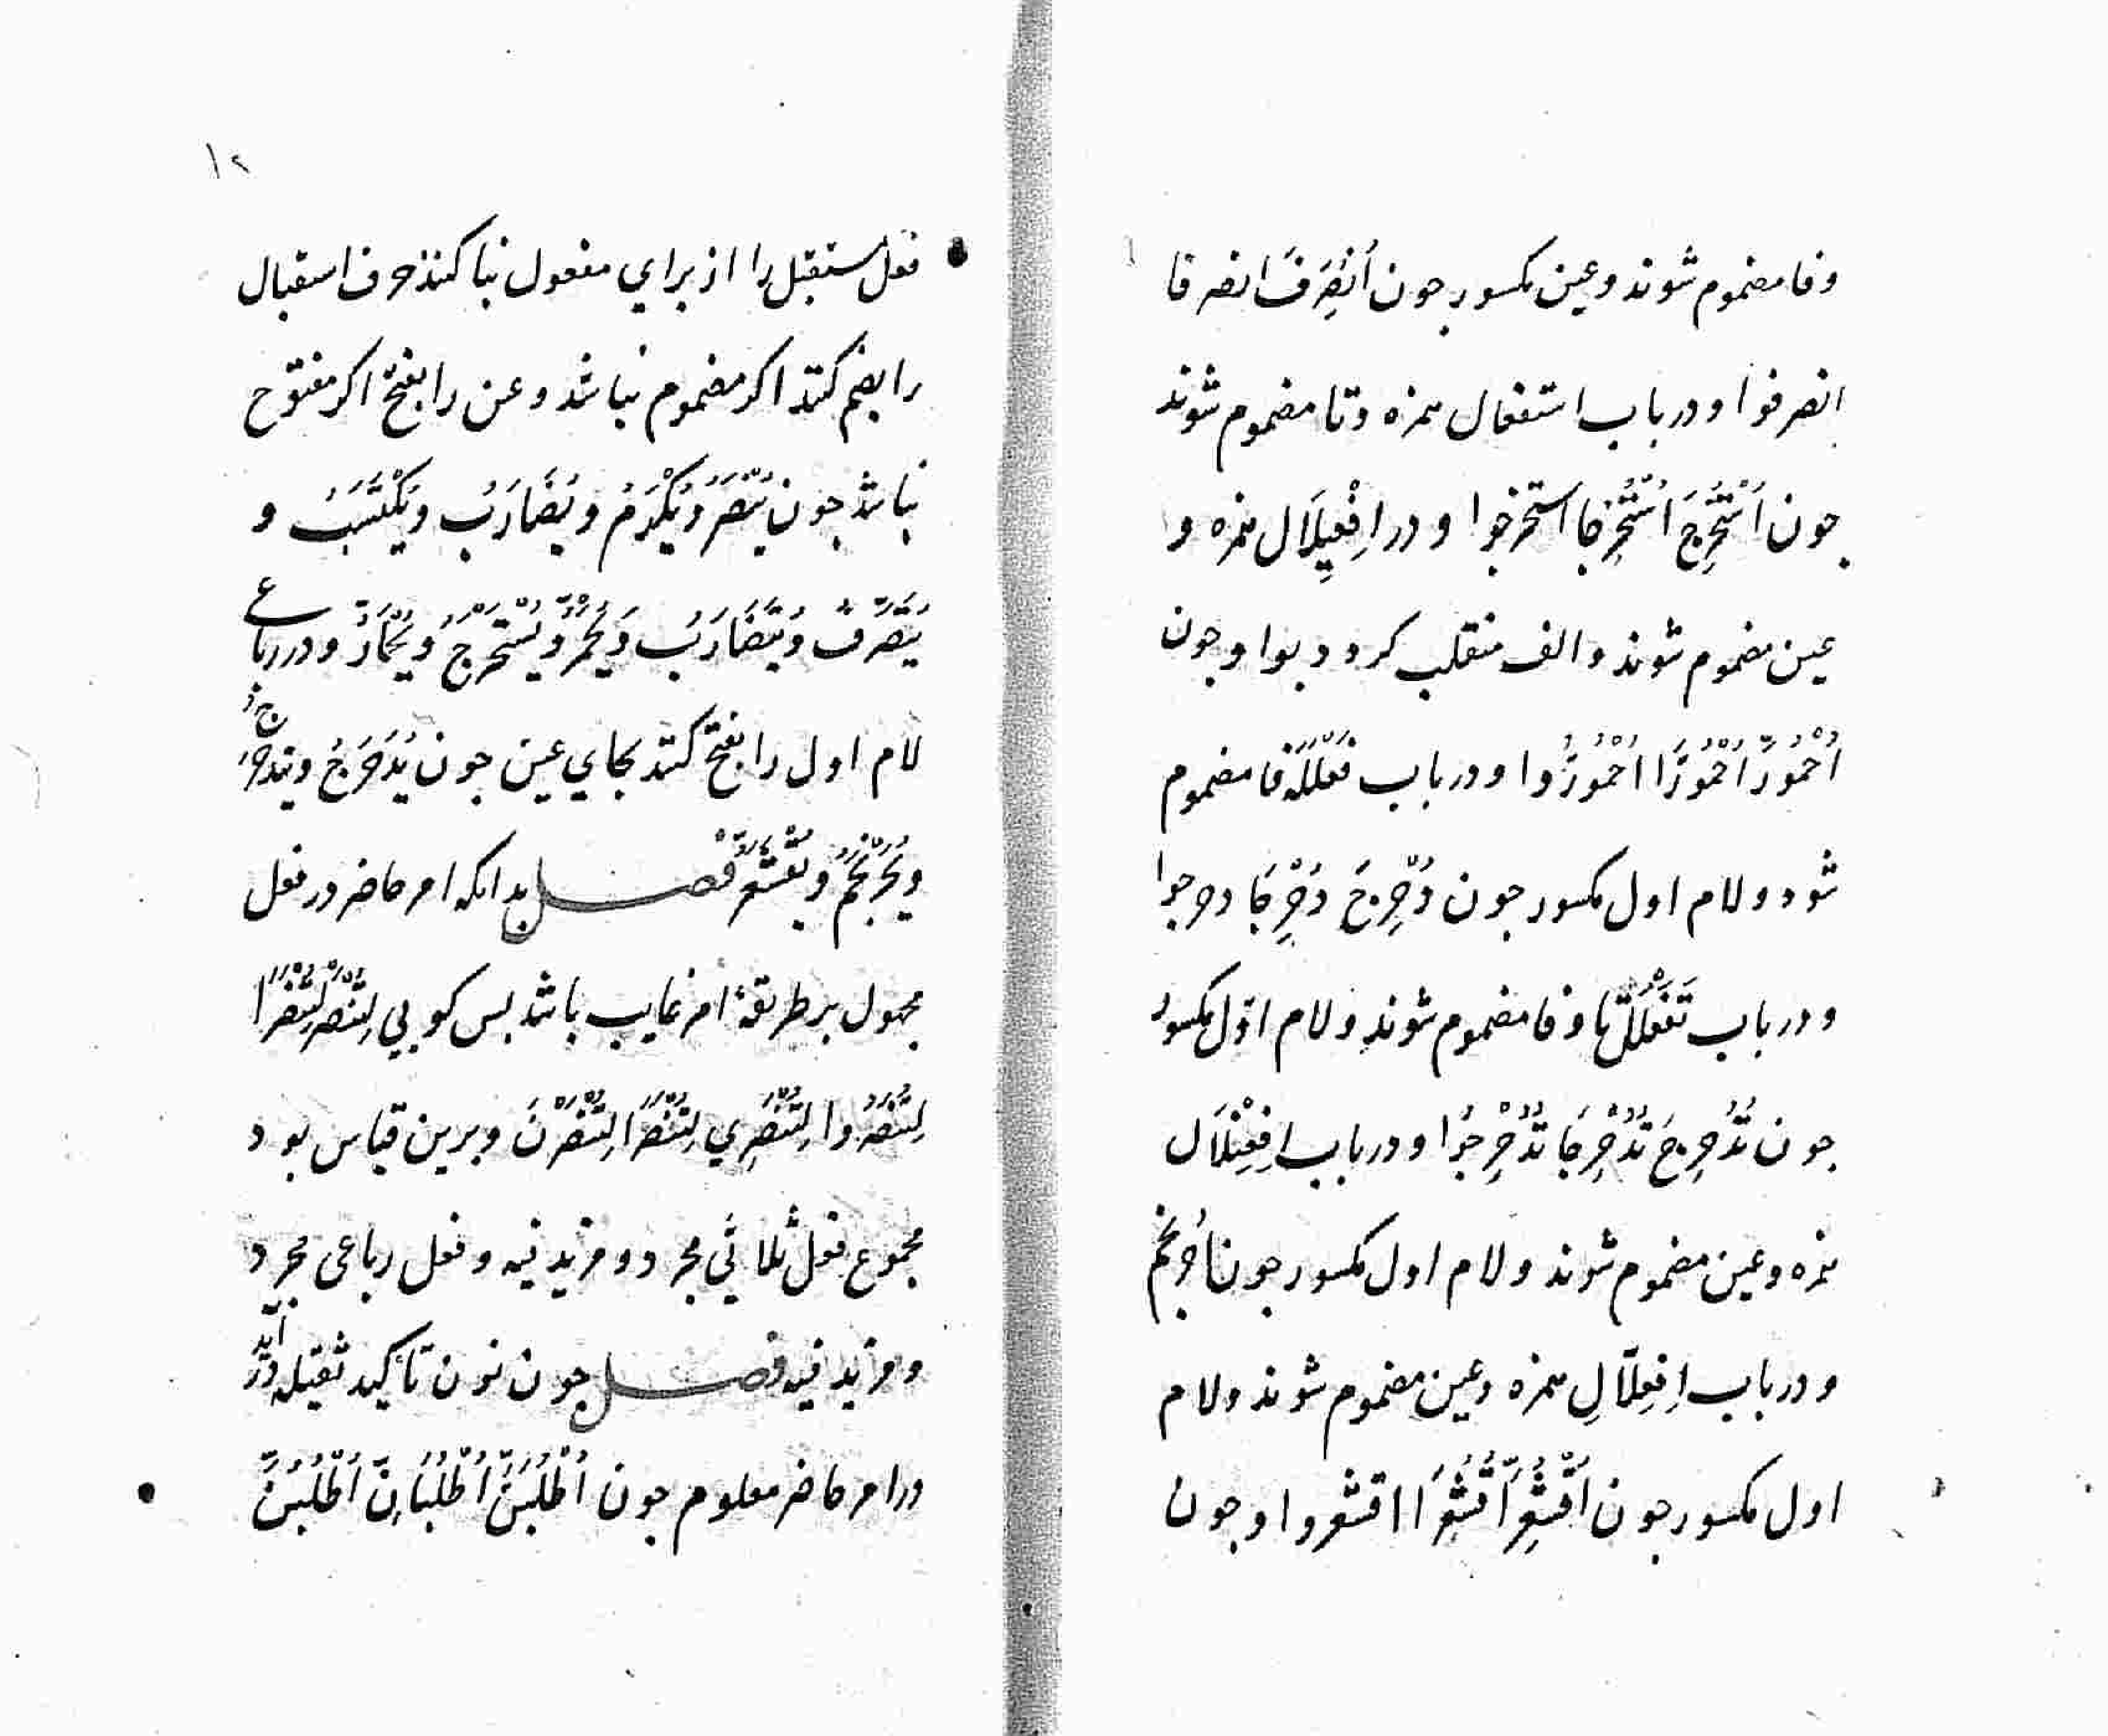 وفا مضموم شوند وعین مکسور جون اُنْصُرِفَ انصرفا
انصرفوا و در باب استفعال همزه وتا مضموم شوند
جون اُسْتُخْرِجَ اُسْتُخْرِجَا استخرجوا و در اِفْعِیِلَال همزه و
عین مضموم شوند و الف منقلب کردد بواو جون
اُحْمُورَّ اُحْمُورَّا اُحْمُورُّوا و در باب فَعْلَلَه فا مضموم
شود و لام اول مکسور جون دُحْرِجَ دُحْرِجَا دحرجوا
و در باب تَفَعْلُلْ تا و فا مضموم شوند و لام اوّل مکسور
جون تُدُحْرِجَ تُدُحْرِجَا تُدُحْرِجُوا و در باب اِفْعِنْلَال
همزه و عین مضموم شوند و لام اول مکسور جون اُحْرُنْجِمَ
و در باب اِفْعِلّالِ همزه و عین مضموم شوند و لام
اول مکسور جون اُقْشُعِرَّ اُقْشُعِرَّا اقشعروا و جون
۱۲
فعل مستقبل را از برای مفعول بنا کنند حرف استقبال
را بضم کنند اکر مضموم نباشد و عین را بفتح اکر مفتوح
نباشد جون یُنْصَرُ وَیُکْرَمُ و یُضَارَبُ و یُکْتَسَبُ و
یُتَصَرَّفُ وَیُتَضَارَبُ وَیُحْمَرُّ وَیُسْتَخْرَجُ وَیُحْمَارُّ و در رباعی
لام اول را بفتح کنند بجای عین جون یُدَحْرَجُ و یتدحرج
وَیُحْرَنْجَمُ وَیُقْشَعَرُّ فصل بدانکه امر حاضر در فعل
مجهول بر طریقهٔ امر غایب باشد بس کویی لِتُنْصَرْ لِتُنْصَرَا
لِتُنْصَرُوا لِتُنْصَرِی لِتُنْصَرَا لِتُنْصَرْنَ و برین قیاس بود
مجموع فعل ثلاثی مجرد و مزید فیه و فعل رباعی مجرد
و مزید فیه فصل جون نون تأکید ثقیله در آید
در امر حاضر معلوم جون اُطْلُبَنَّ اُطْلُبَانِّ اُطْلُبُنَّ